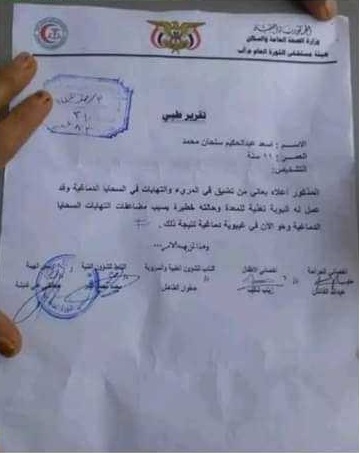 الجمهورية اليمنية
وزارة الصحة العامة والسكان
هيئة مستشفى الثورة العام م/إب
تقرير طبي
الاســـم : اسعد عبدالحكيم سلحان محمد
العمـــر : ١١ سنة
التشخيص:
المذكور اعلاه يعاني من تضيق في المريء والتهابات في السحايا الدماغية وقد
عمل له انبوبة تغذية للمعدة وحالته خطيرة بسبب مضاعفات التهابات السحايا
الدماغية وهو الآن في غيبوبة دماغية نتيجة ذلك .
وهذا لزم الأمر...
اخصائي الجراحة
اخصائي الاطفال
النائب للشؤون الفنية والسريرية
النائب للشؤون الفنية
رئيس الهيئة